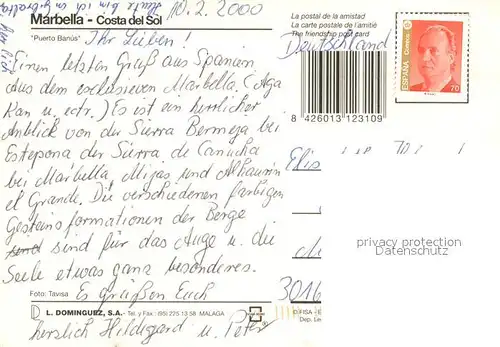 Marbella - Costa del Sol
10.2.2000
"Puerto Banús"
Ihr Lieben!
Einen letzten Gruß aus Spanien
aus dem exclusieven Marbella. (Aga
Kan u. ectr.) Es ist ein herrlicher
Anblick von du Sierra Bermeza bei
Estepona der Sierra de Canucha
bei Marbella Mijas und Alhaurin
el Grande. Die verschiedenen farbigen
Gesteinsformationen der Berge
sind sind für das Auge u. die
Seele etwas ganz besonderes.
Es grüßen Euch
herzlich Hildegard u. Peter
Foto: Tavisa
L. DOMINGUEZ, S.A. - Tel. y Fax. (95) 225 13 58 MALAGA
La postal de la amistad
La carte postale de l'amitié
The friendship post card
Deutschland
8 426013 123109
ESPAÑA
Correos
70
Elis
3016
privacy protection
Datenschutz
D.FISA - E
Dep. Le